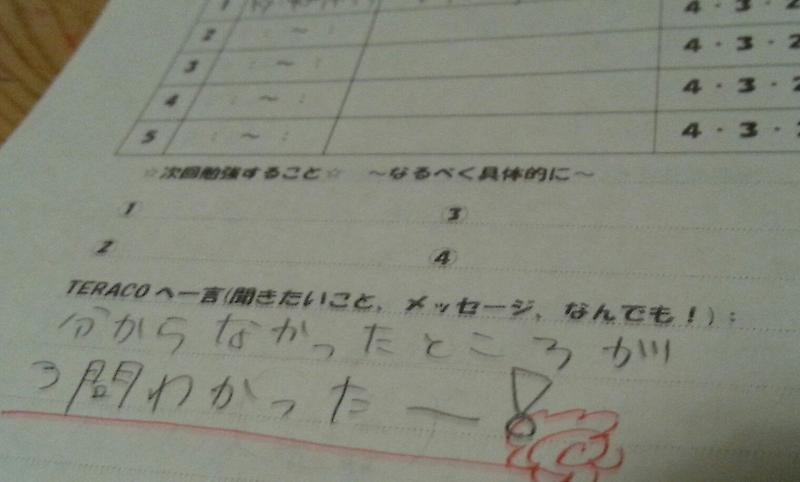 1 4・3・2
2 : ～ : 4・3・2
3 : ～ : 4・3・2
4 : ～ : 4・3・2
5 : ～ : 4・3・
☆次回勉強すること☆ ～なるべく具体的に～
1 3
2 4
TERACOへ一言(聞きたいこと、メッセージ、なんでも！)：
分からなかったところが
3問わかったー!